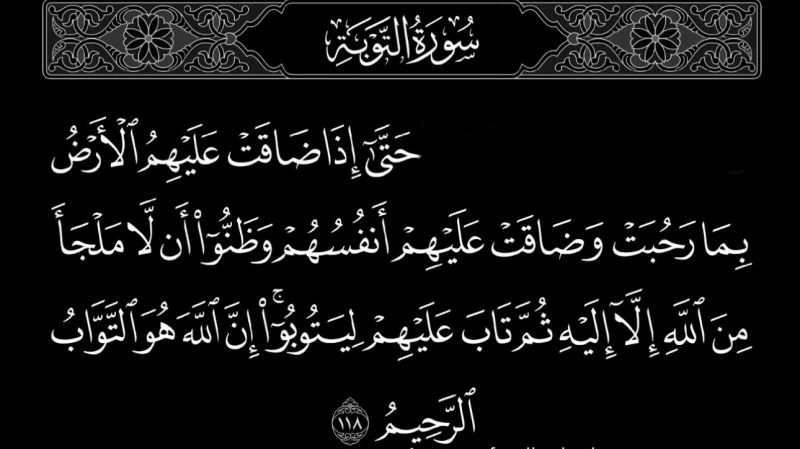 سُورَةُ التَّوۡبَةِ
حَتَّىٰٓ إِذَا ضَاقَتۡ عَلَيۡهِمُ ٱلۡأَرۡضُ
بِمَا رَحُبَتۡ وَضَاقَتۡ عَلَيۡهِمۡ أَنفُسُهُمۡ وَظَنُّوٓاْ أَن لَّا مَلۡجَأَ
مِنَ ٱللَّهِ إِلَّآ إِلَيۡهِ ثُمَّ تَابَ عَلَيۡهِمۡ لِيَتُوبُوٓاْۚ إِنَّ ٱللَّهَ هُوَ ٱلتَّوَّابُ
ٱلرَّحِيمُ ١١٨